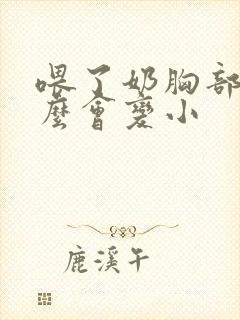 喂了奶胸部
麼會變小
鹿溪午